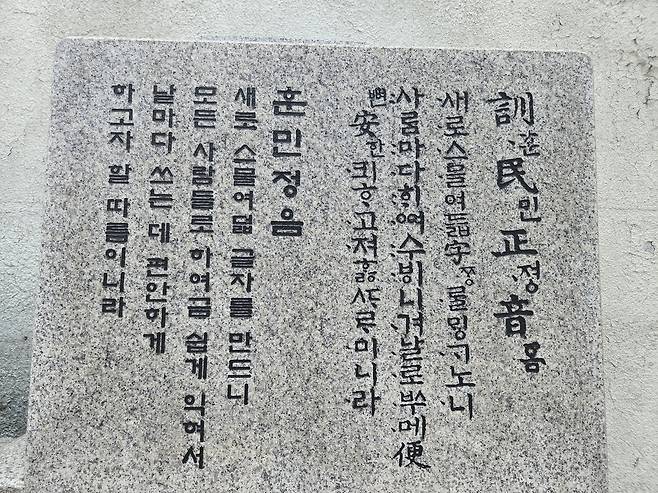 訓훈民민正정音ᅙᅳᆷ
새로스믈여듧字ᄍᆞᆼᄅᆞᆯᄆᆡᇰᄀᆞ노니
사ᄅᆞᆷ마다ᄒᆡᅇᅧ수ᄫᅵ니겨날로ᄡᅮ메便
뼌安한킈ᄒᆞ고져ᄒᆞᇙᄯᆞᄅᆞ미니라
훈민정음
새로 스물여덟 글자를 만드니
모든 사람들로 하여금 쉽게 익혀서
날마다 쓰는 데 편안하게
하고자 할 따름이니라